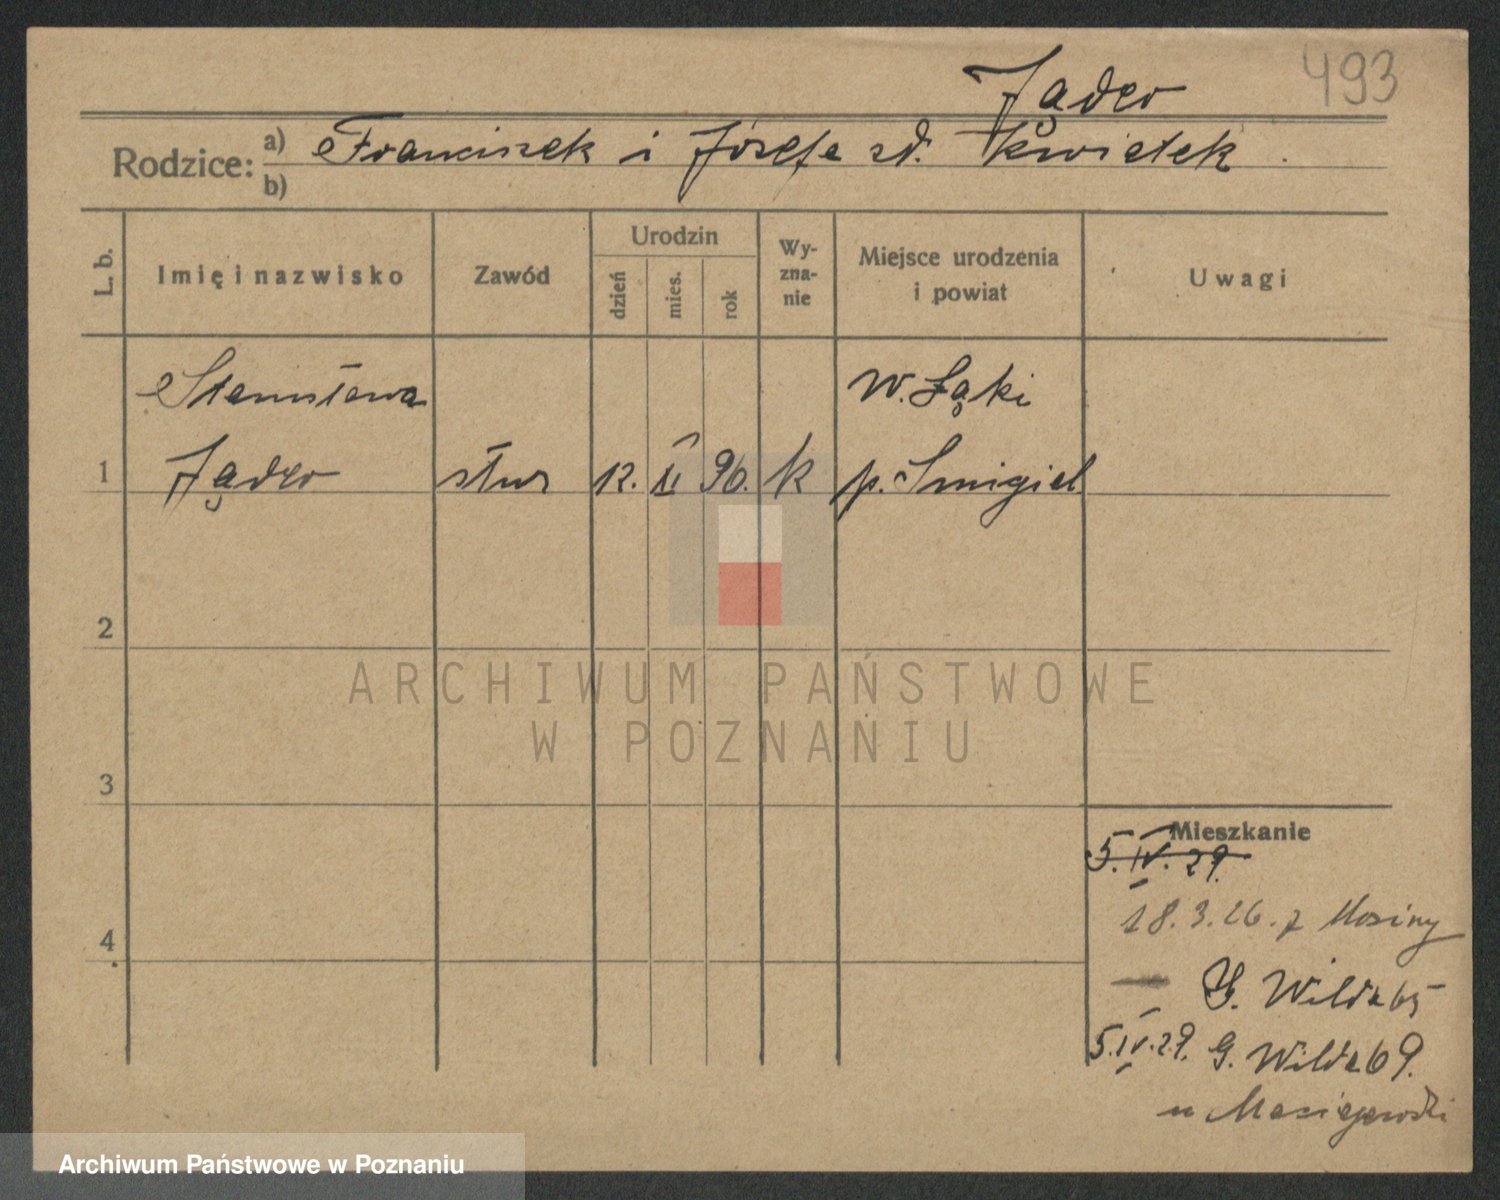 493
Jąder
Rodzice: a) Franciszek i Józefa zd. Kwiatek
b)
L. b. Imię i nazwisko Zawód Urodzin dzień mies. rok Wy-zna-nie Miejsce urodzenia i powiat Uwagi
Stanisława W. Łąki
1 Jąder służ 12. 96. k p. Smigiel
2
3
Mieszkanie
5. IV. 29.
18.3.26. z Mosiny
4
G. Wilda 65
5.IV.29. G. Wilda 69.
u
ARCHIWUM PAŃSTWOWE
W POZNANIU
Archiwum Państwowe w Poznaniu